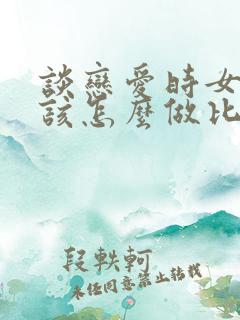 談戀愛時女
該怎麼做比
段軼軻
未经同意禁止转载